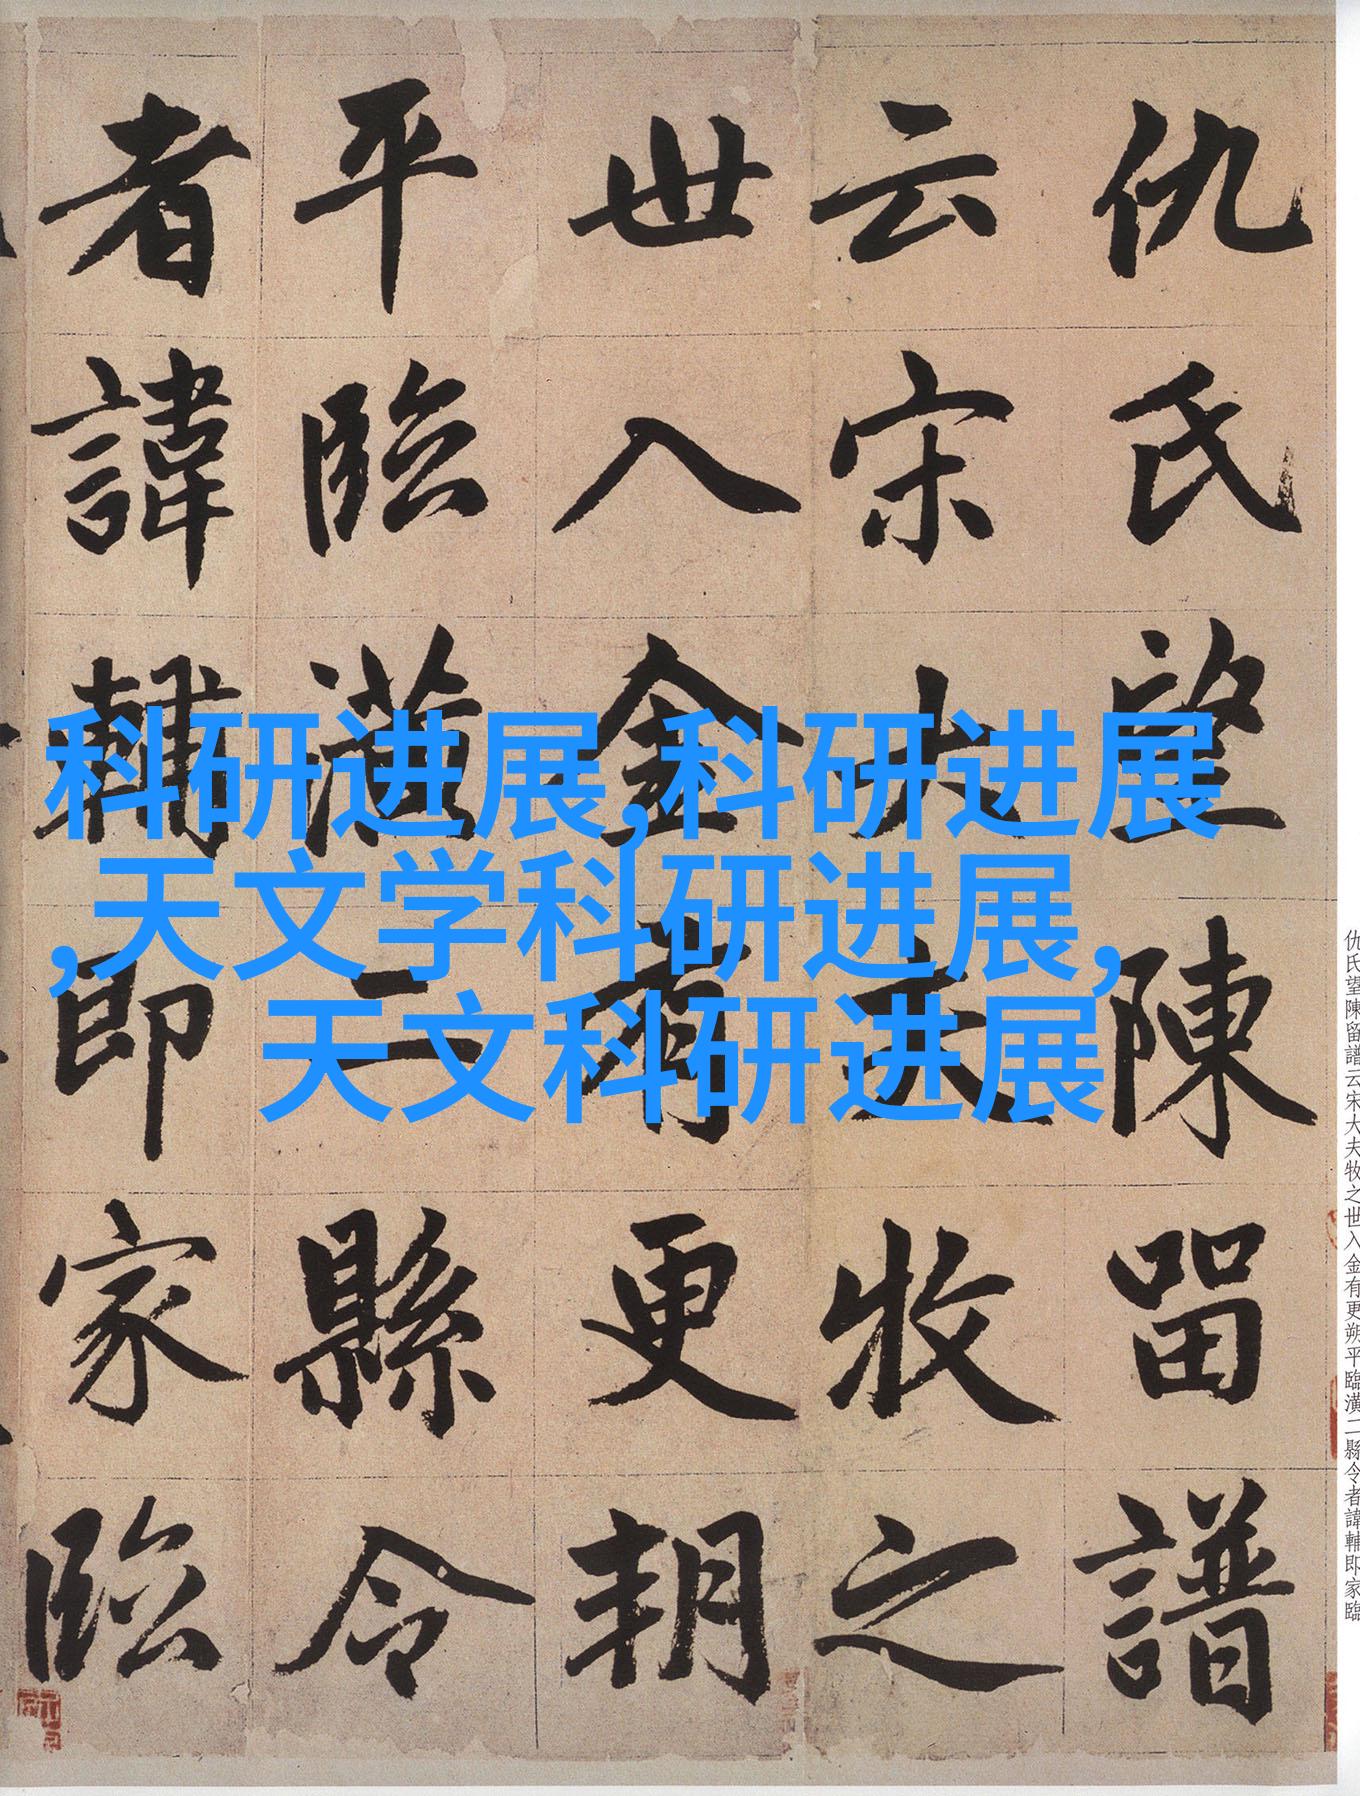 科研进展,科研进展
,天文学科研进展,
天文科研进展
仇氏望陳留譜
云宋大夫牧之
世入金有更朔
平臨潢二縣令
者諱輔即家臨
仇氏望陳留譜云宋大夫牧之世入金有更朔平臨潢二縣令者諱輔即家臨